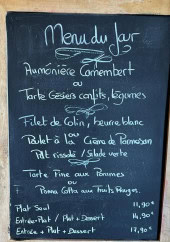 Menu du Jour
Aumônière Camembert
ou
Tarte Gésiers confits, légumes
Filet de Colin, beurre blanc
ou
Poulet à la Crème de Parmesan
Plat rissolé / Salade verte
Tarte Fine aux Pommes
ou
Panna Cotta aux Fruits Rouges.
Plat Seul 11,90€
Entrée + Plat / Plat + Dessert 14,90€
Entrée + Plat + Dessert 17,90€